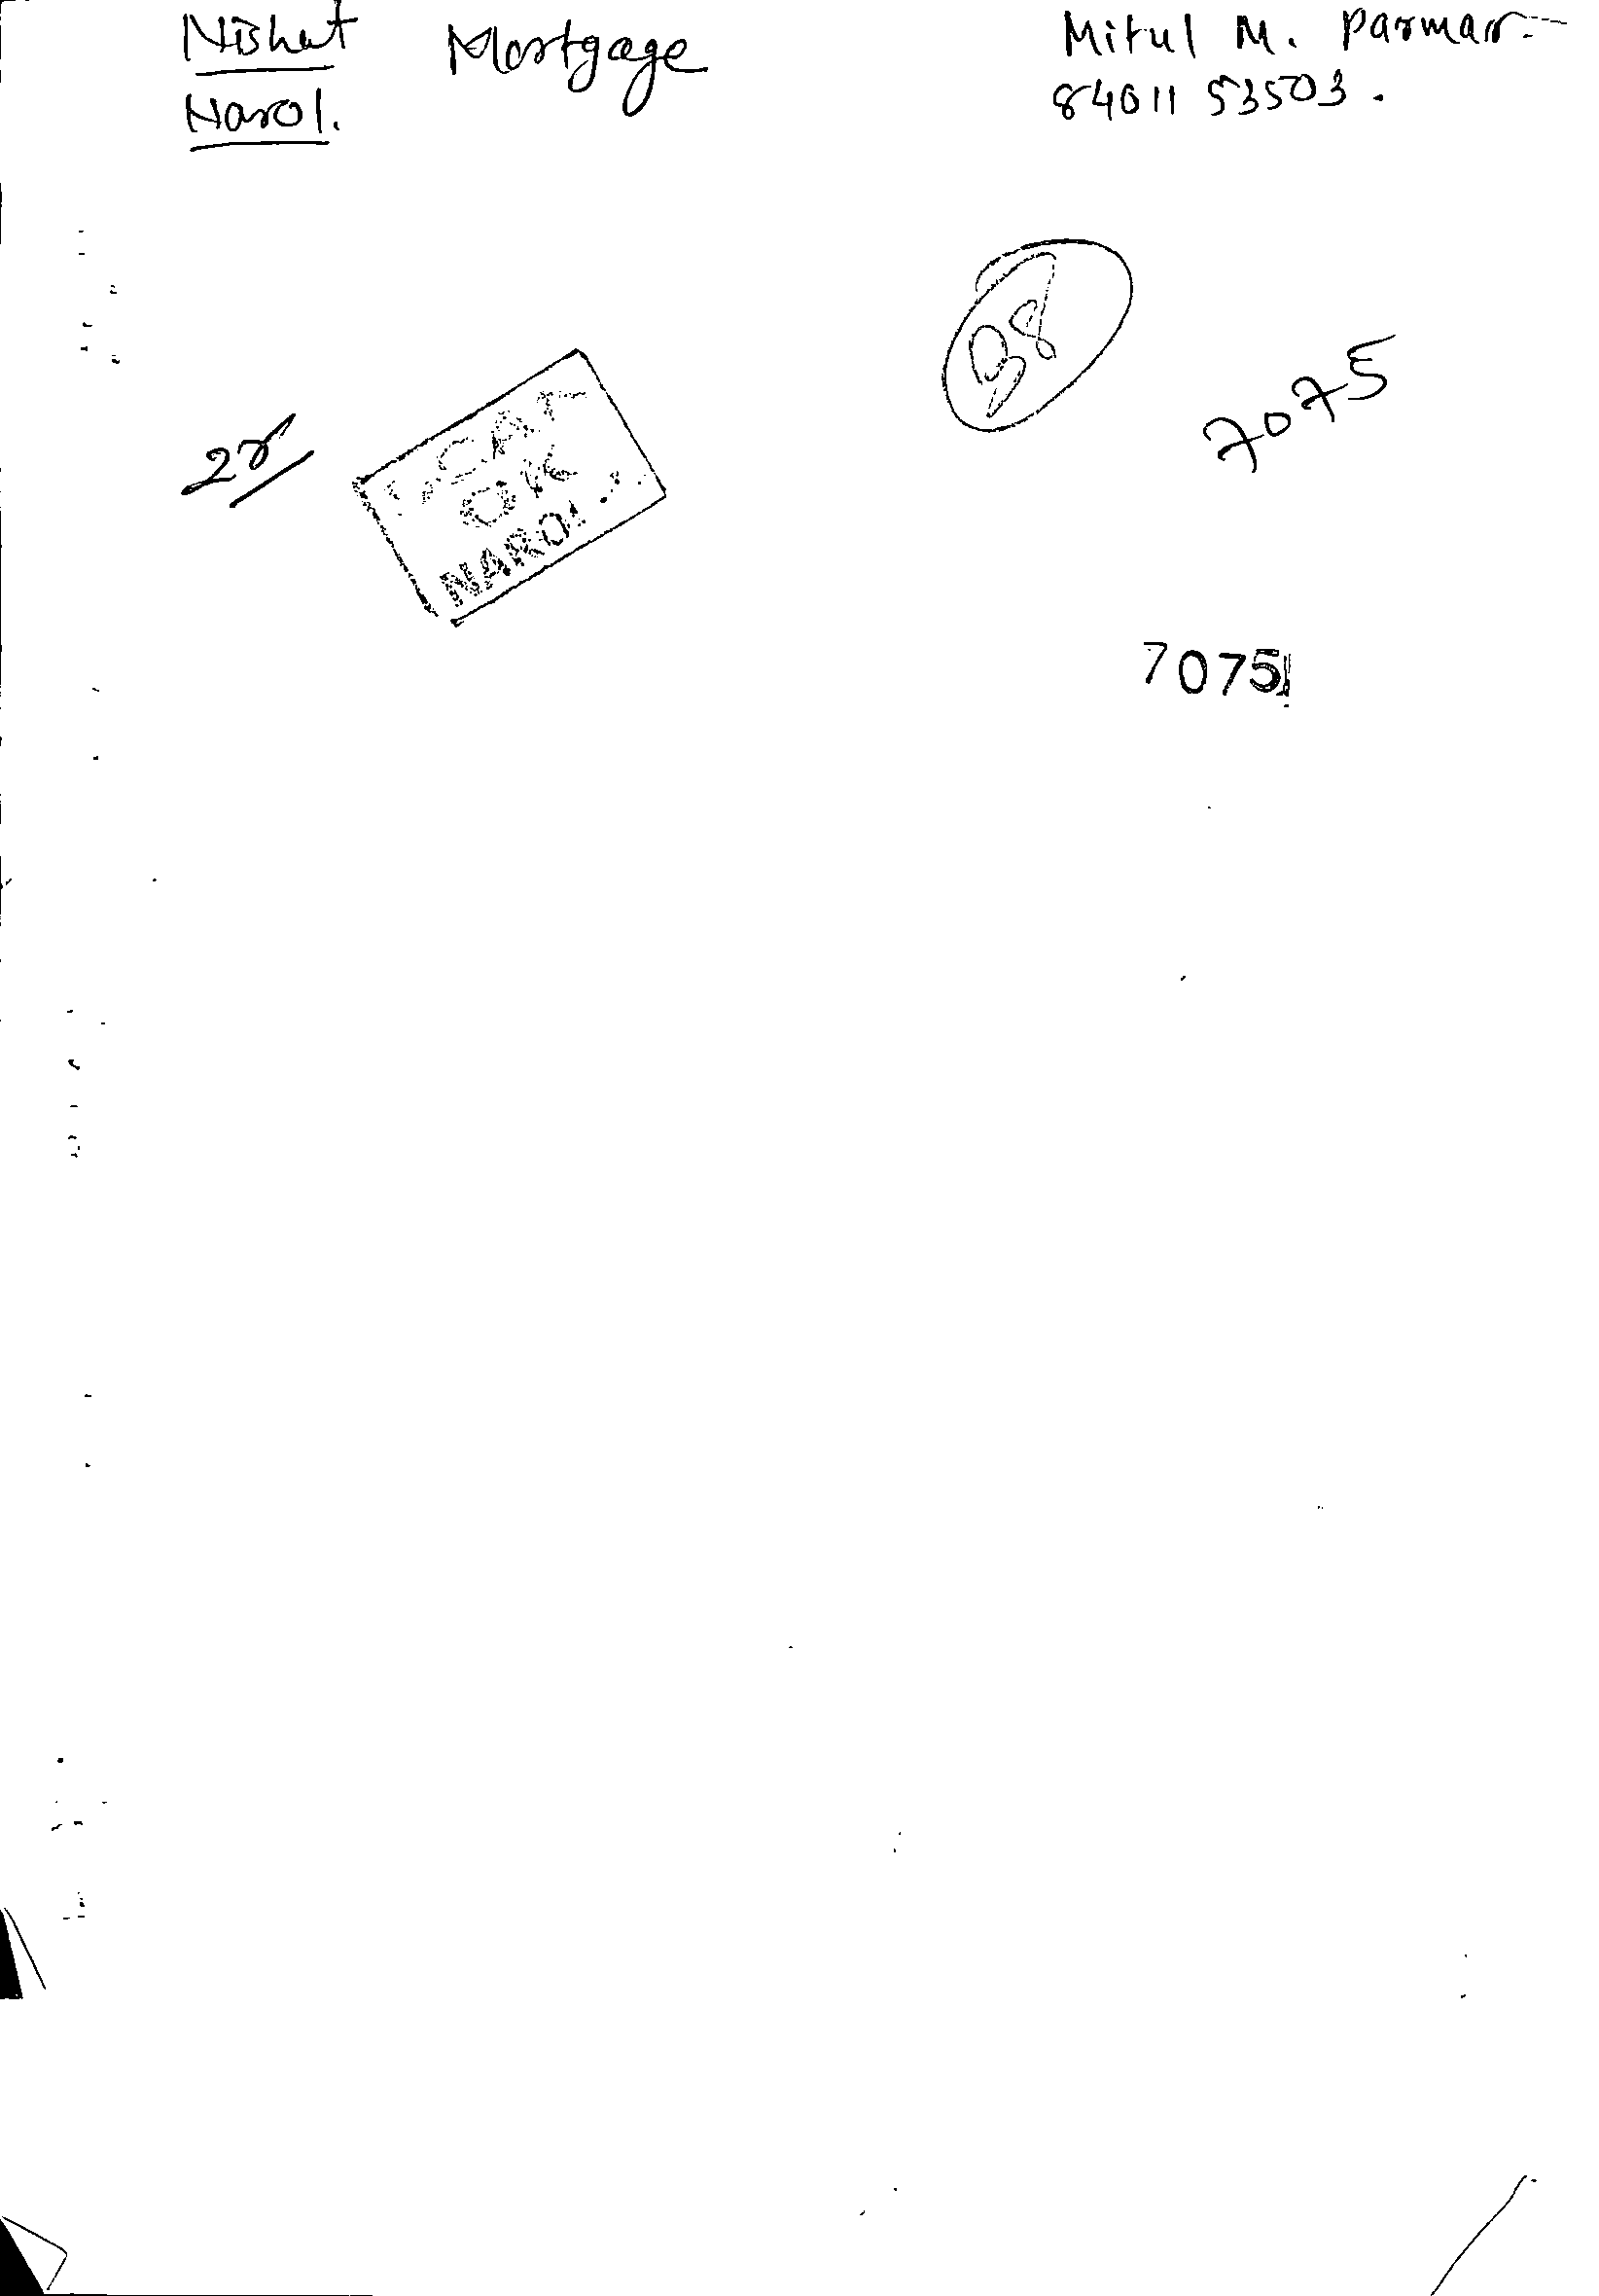 Nishat
Narol.
Mortgage
Mitul M. Parmar
84011 53503.
7075
OK
NAROL
7075